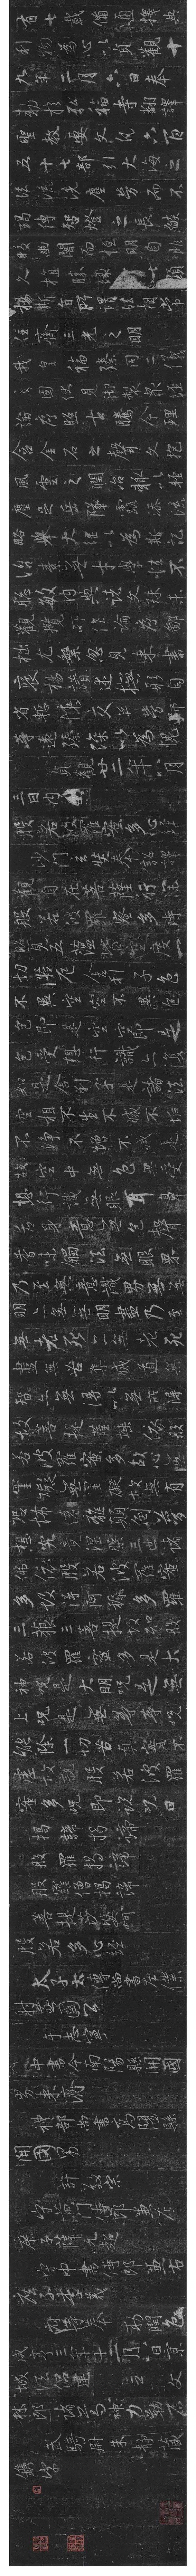 有七載備通釋典
利物為心以貞觀十
九年二月六日奉
勅於弘福寺翻譯
聖教要文凡六百
五十七部引大海之
法流洗塵勞而不
竭傳智燈之長焰
皎幽闇而恒明自非
久植勝緣何以顯
揚斯旨所謂法相常
住齊三光之明
我皇福臻同二儀
之固伏見御製衆經
論序照古騰今理
含金石之聲文抱
風雲之潤治輒以輕
塵足岳墜露添流
略舉大綱以為斯記
治素無才學性不
聰敏內典諸文殊未
觀攬所作論序鄙
拙尤繁忽見來書
褒揚讚述撫躬自
省慚悚交并勞
師等遠臻深以為愧
貞觀廿二年八月
三日內府
般若波羅蜜多心經
沙門玄奘奉詔譯
觀自在菩薩行深
般若波羅蜜多時
照見五蘊皆空度一
切苦厄舍利子色
不異空空不異色
色即是空空即是
色受想行識亦復
如是舍利子是諸法
空相不生不滅不垢
不淨不增不減是
故空中無色無受
想行識無眼耳鼻
舌身意無色聲
香味觸法無眼界
乃至無意識界無無
明亦無無明盡乃至
無老死亦無老死
盡無苦集滅道無
智亦無得以無所得
故菩提薩埵依般
若波羅蜜多故心
無罣礙無罣礙故無有
恐怖遠離顛倒夢
想究竟涅槃三世諸
佛依般若波羅蜜
多故得阿耨多羅
三藐三菩提故知般
若波羅蜜多是大
神呪是大明呪是無
上呪是無等等呪
能除一切苦真實不
虛故說般若波羅
蜜多呪即說呪曰
揭諦揭諦
般羅揭諦
般羅僧揭諦
菩提莎婆訶
般若多心經
太子太傅尚書左僕
射燕國公
于志寧
中書令南陽縣開國
男來濟
禮部尚書高陽縣
開國男
許敬宗
守黃門侍郎兼左
庶子薛元超
守中書侍郎兼右
庶子李義
府等奉 勅潤色
咸亨三年十二月八日京
城法侶建立 文
林郎諸葛神力勒石
武騎尉朱靜藏
鐫字